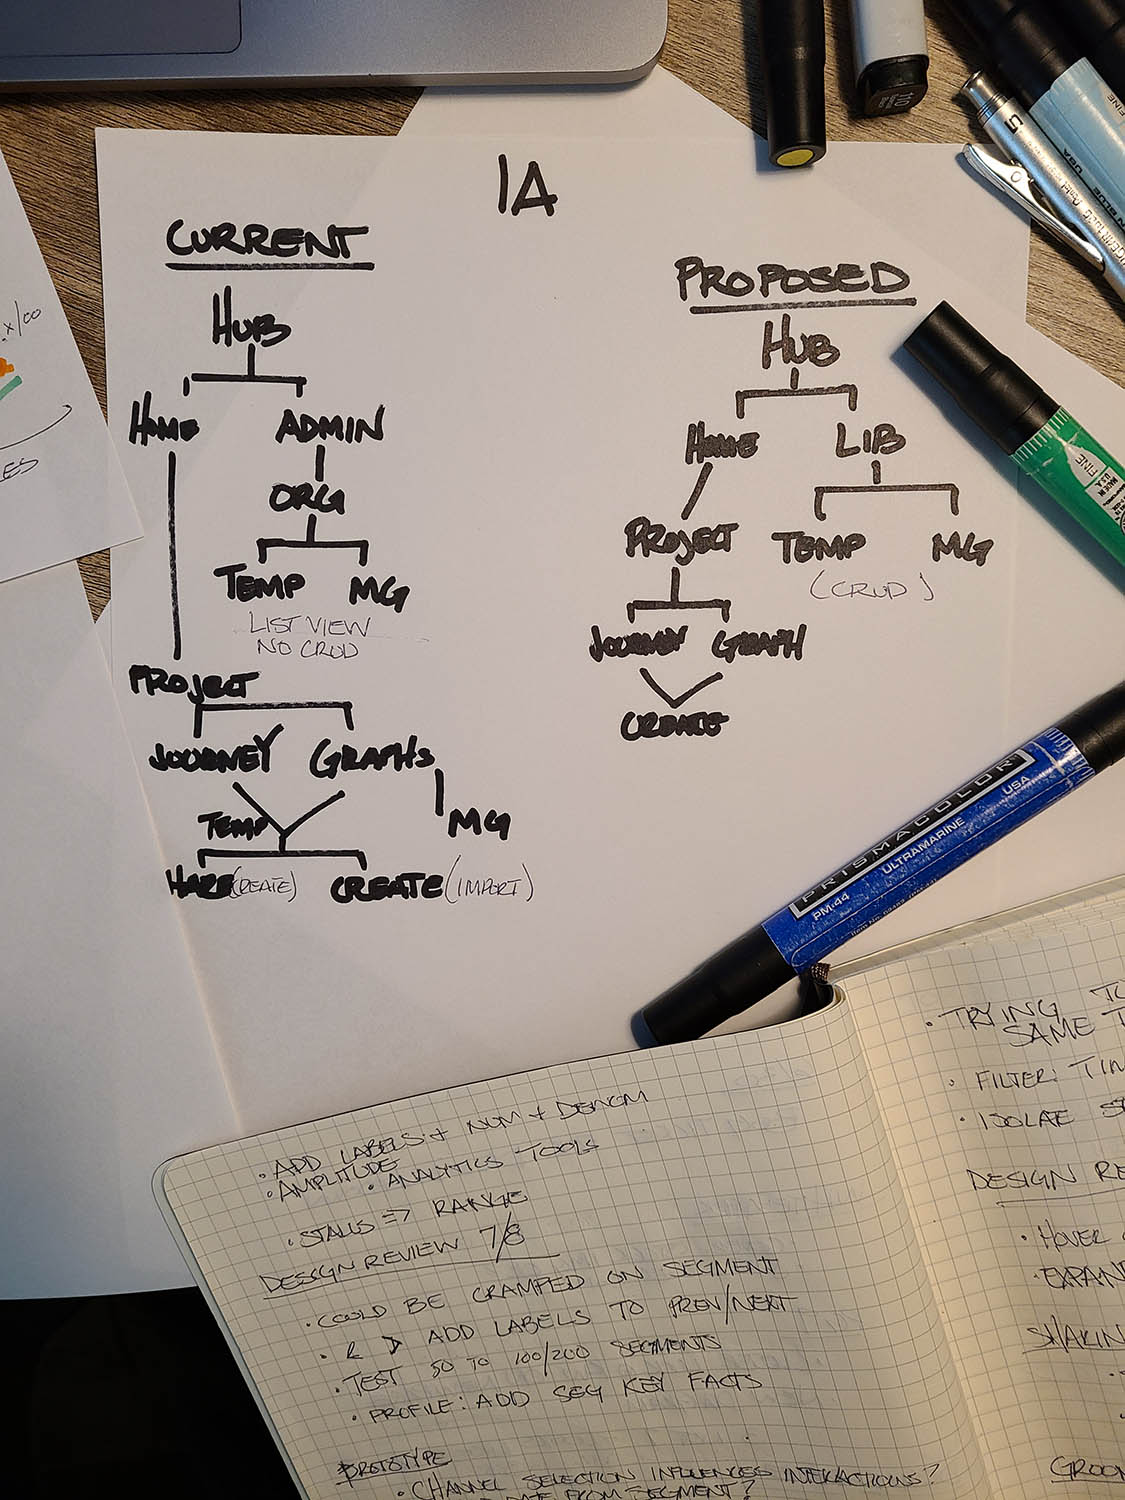 IA
CURRENT
HUB
HOME ADMIN
ORG
TEMP MG
LIST VIEW
NO CRUD
PROJECT
JOURNEY GRAPHS
TEMP MG
(CREATE) CREATE (IMPORT)
PROPOSED
HUB
HOME LIB
PROJECT TEMP MG
(CRUD)
JOURNEY GRAPH
CREATE
.x/00
ES
FINE
USA
5
FINE
MADE IN
U.S.A.
PRISMACOLOR
PM-44 ULTRAMARINE USA
• ADD LABELS + NUM + DENOM
• AMPLITUDE
• ANALYTICS TOOLS
• STALLS => RANGE
DESIGN REVIEW 7/8
• COULD BE CRAMPED ON SEGMENT
• < > ADD LABELS TO PREV/NEXT
• TEST 50 TO 100/200 SEGMENTS
• PROFILE: ADD SEG KEY FACTS
PROTOTYPE
• CHANNEL SELECTION INFLUENCES INTERACTIONS?
DATE FROM SEGMENT?
• TRYING TO
SAME T
• FILTER: TIM
• ISOLATE SE
DESIGN RE
• HOVER
• EXPAN
SHARIN
GROO